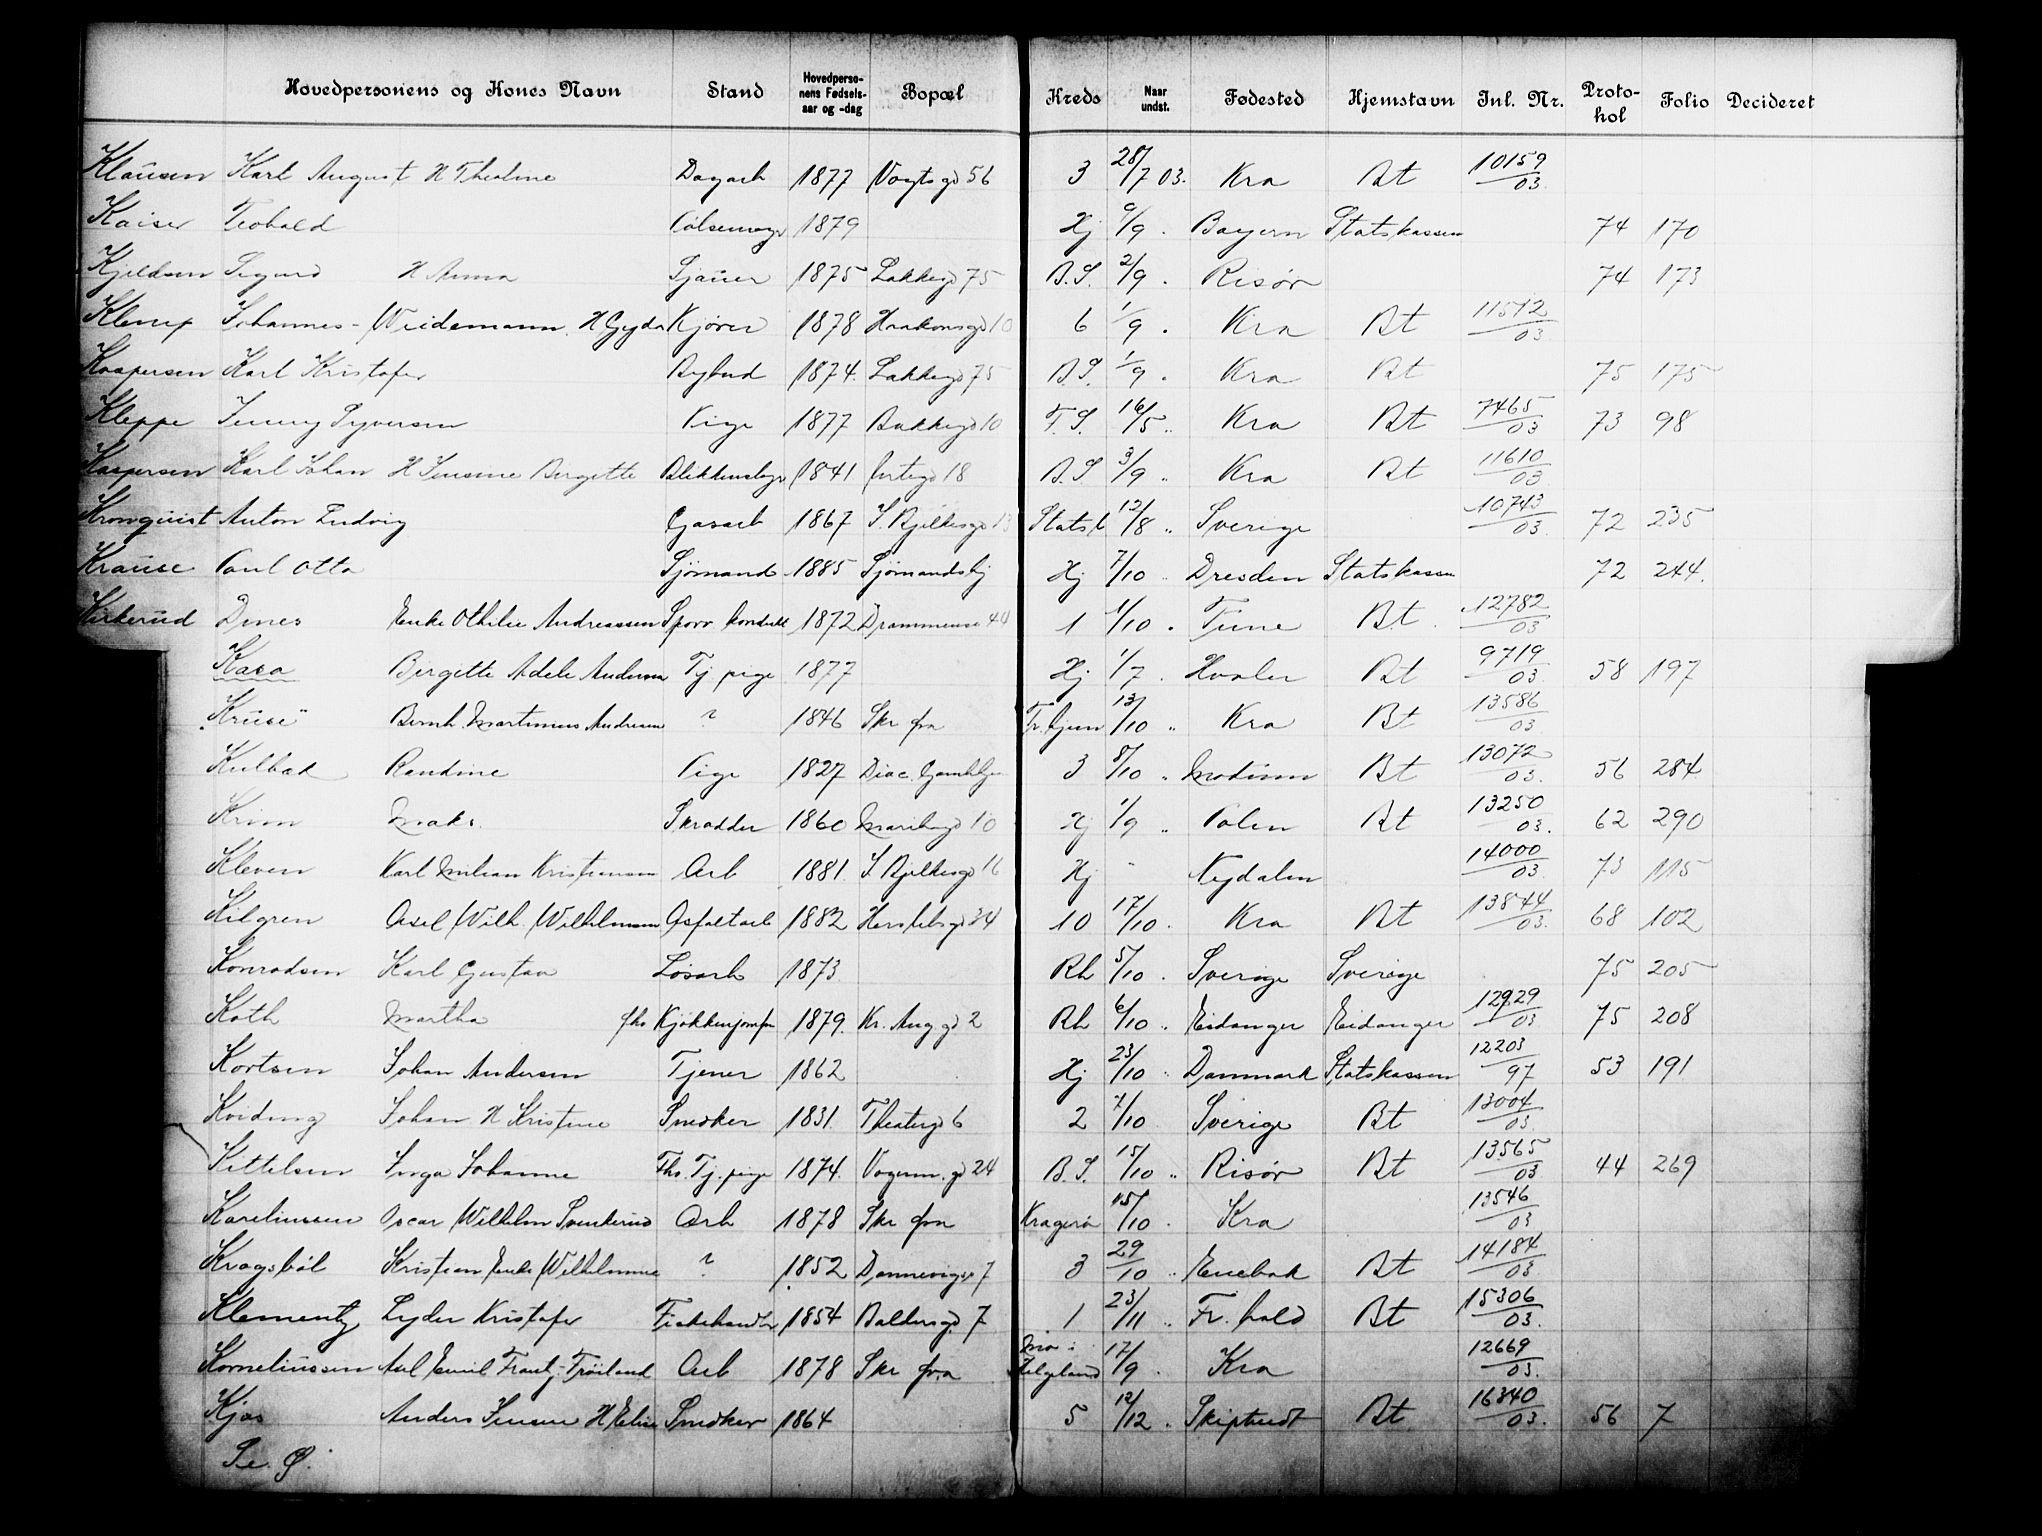 Hovedpersonens og Kones Navn Stand Hovedpersonens Fødselsaar og -dag Bopæl Kreds Naar undst. Fødested Hjemstavn Inl. Nr. Protokol Folio Decideret
Klausen Karl August H Thealine Dagarb 1877 Vogtsgd 56 3 28/7 03. Kra Bt 10159/03.
Kaiser Teobald Pølsemager 1879 Hj 9/9 . Bayern Statskassen 74 170
Kjeldsen Sigurd H Anna Sjauer 1875 Lakkegd 75 B.S. 2/9 . Risør 74 173
Klerup Johannes - Weidemann H Gyda Kjører 1878 Haakonsgd 10 6 1/9 . Kra Bt 11512/03
Kaspersen Karl Kristofer Bybud 1874. Lakkegd 75 B.S. 1/9 . Kra Bt 75 175
Kleppe Jenny Syversen Pige 1877 Bakkegd 10 F.S. 16/5 „ Kra Bt 7465/03 73 98
Kaspersen Karl Johan H Jensine Bergette Blikkenslagr 1841 18 B.S 3/9 „ Kra Bt 11610/03
Kronquist Anton Ludvig Gasarb 1867 J. Bjelkesgd 13 Statsk 12/8 „ Sverige 10743/03. 72 235
Krause Paul Otto Sjømand 1885 Sjømandshj Hj 7/10 „ Dresden Statskassen 72 244.
Kirkerud Dines Enke Othilie Andreassen Sporv. konduktr 1872 Drammensv 44 1 1/10 . Tune Bt. 12782/03
Kasa Bergette Adele Andersen Tj. pige 1877 Hj 1/7 . Hvaler Bt 9719/03. 58 197
„Kruse" Bernh. Martinius Andresen ? 1846 Skr fra Fr. hjem 13/10 „ Kra Bt 13586/03
Kulbæk Randine Pige 1827 Diac. Gamlehjem 3 8/10 „ Modum Bt 13072/03. 56 284
Krim Maks. Skrædder 1860 Maribogd 10 Hj 1/9 „ Polen Bt 13250/03. 62 290
Kleven Karl Milian Kristiansen Arb 1881. J. Bjelkesgd 16 Hj Nydalen 14000/03. 73 115
Kilgren Axel Wilh. Wilhelmsen Asfaltarb 1882 Herslebsgd 34 10 17/10 . Kra Bt 13844/03. 68 102
Konradsen Karl Gustav Løsarb 1873 Rh 5/10 . Sverige Sverige 75 205
Koth Martha fhv Kjøkkenjomfru 1879. Kr. Aug gd 2 Rh 6/10 „ Eidanger Eidanger 12929/03 75 208
Kortsen Johan Andersen Tjener 1862 Hj 23/10 „ Danmark Statskassen 12203/97 53 191
Kviding Johan H Kristine Snedker 1831. Theatergd 6 2 7/10 Sverige Bt 13004/03.
Kittelsen Inga Johanne Fhv. Tj. pige 1874. Vognm. gd 24 B.S. 15/10 „ Risør Bt 13565/03. 44 269
Karelinssen Oscar Wilhelm Svenkerud Arb 1878 Skr fra Kragerø 15/10 . Kra 13546/03
Kragsbøl Kristian Enke Wilhelmine ? 1852 Dannevigsv 7 3 29/10 „ Enebak Bt 14184/03
Klementz Lyder Kristofer Fiskehandler 1854 Baldersgd 7 1 23/11 „ Fr. hald Bt 15306/03.
Korneliussen Axel Emil Frantz - Trøiland Arb 1878 Skr fra Mo i Helgeland 17/9 . Kra 12669/03.
Kjøs Anders Jensen H Eline Snedker 1864 5 12/12 „ Skiptvedt Bt 16340/03. 56 7
Se Q.